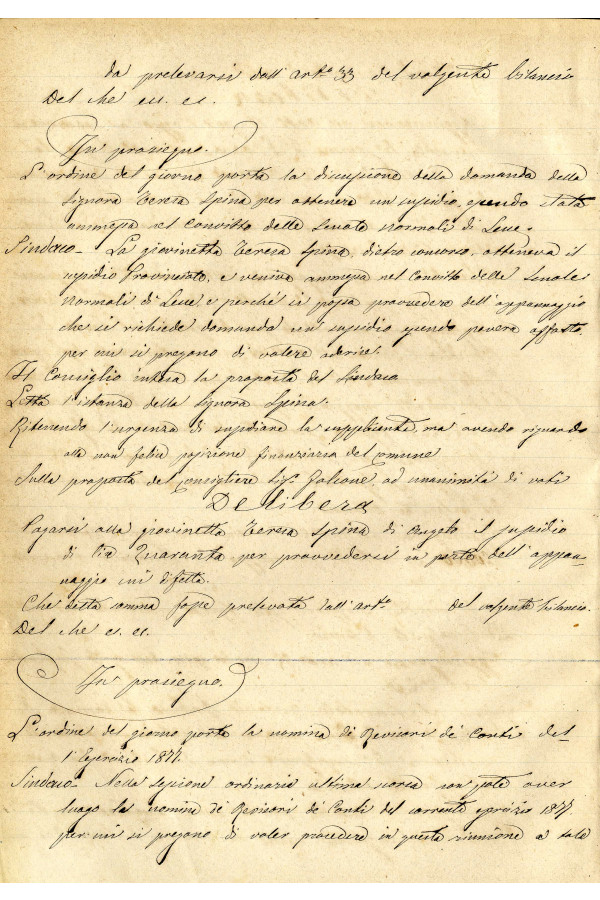 da prelevarsi dall'art.º 33 del volgente bilancio
Del che es. es.
In prosieguo.
L'ordine del giorno porta la discussione della domanda della
Signora Teresa Spina per ottenere un sussidio, essendo stata
ammessa nel Convitto delle Scuole normali di Lecce.
Sindaco - La giovinetta Teresa Spina, dietro concorso, otteneva il
sussidio Provinciale, e veniva ammessa nel Convitto delle Scuole
normali di Lecce, e perché si possa provvedere dell'appannaggio
che si richiede domanda un sussidio essendo povera affatto,
per cui si pregano di volere aderire.
Il Consiglio intesa la proposta del Sindaco
Letta l'istanza della Signora Spina.
Ritenendo l'urgenza di sussidiare la supplicante, ma avendo riguardo
alla non felice posizione finanziaria del Comune
Sulla proposta del Consigliere Sig.r Falcone, ad unanimità di voti
Delibera
Pagarsi alla giovinetta Teresa Spina di Angelo il sussidio
di lire Quaranta per provvedersi in parte dell'appan-
naggio cui difetta.
Che detta somma fosse prelevata dall'art.º del volgente bilancio.
Del che es. es.
In prosieguo.
L'ordine del giorno porta la nomina di Revisori dè Conti del-
l'Esercizio 1877.
Sindaco - Nella sessione ordinaria ultima scorsa non potè aver
luogo la nomina dè Revisori dè Conti del corrente esercizio 1877.
per cui si pregano di voler procedere in questa riunione a tale